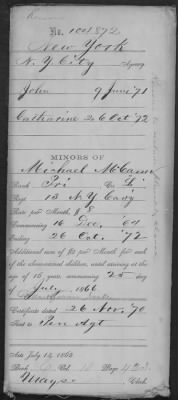 No. 104872
New York
N. Y. City Agency
John 9 June '71
Catharine 26 Oct '72
MINORS OF
Michael McCann
Rank Pri Co.
Reg 13 N Y Cavy
Rate per Month, $ 8
Commencing 16 Dec. '64
Ending 26 Oct. '72
Additional sum of $2 per Month for each
of the above-named children, until arriving at the
age of 16 years, commencing 25 day
of July 1866
Certificate dated 26 Nov. '70
Sent to Pen Agt
Acts July 14, 1862
Book Vol. Page
Mayse Clerk.